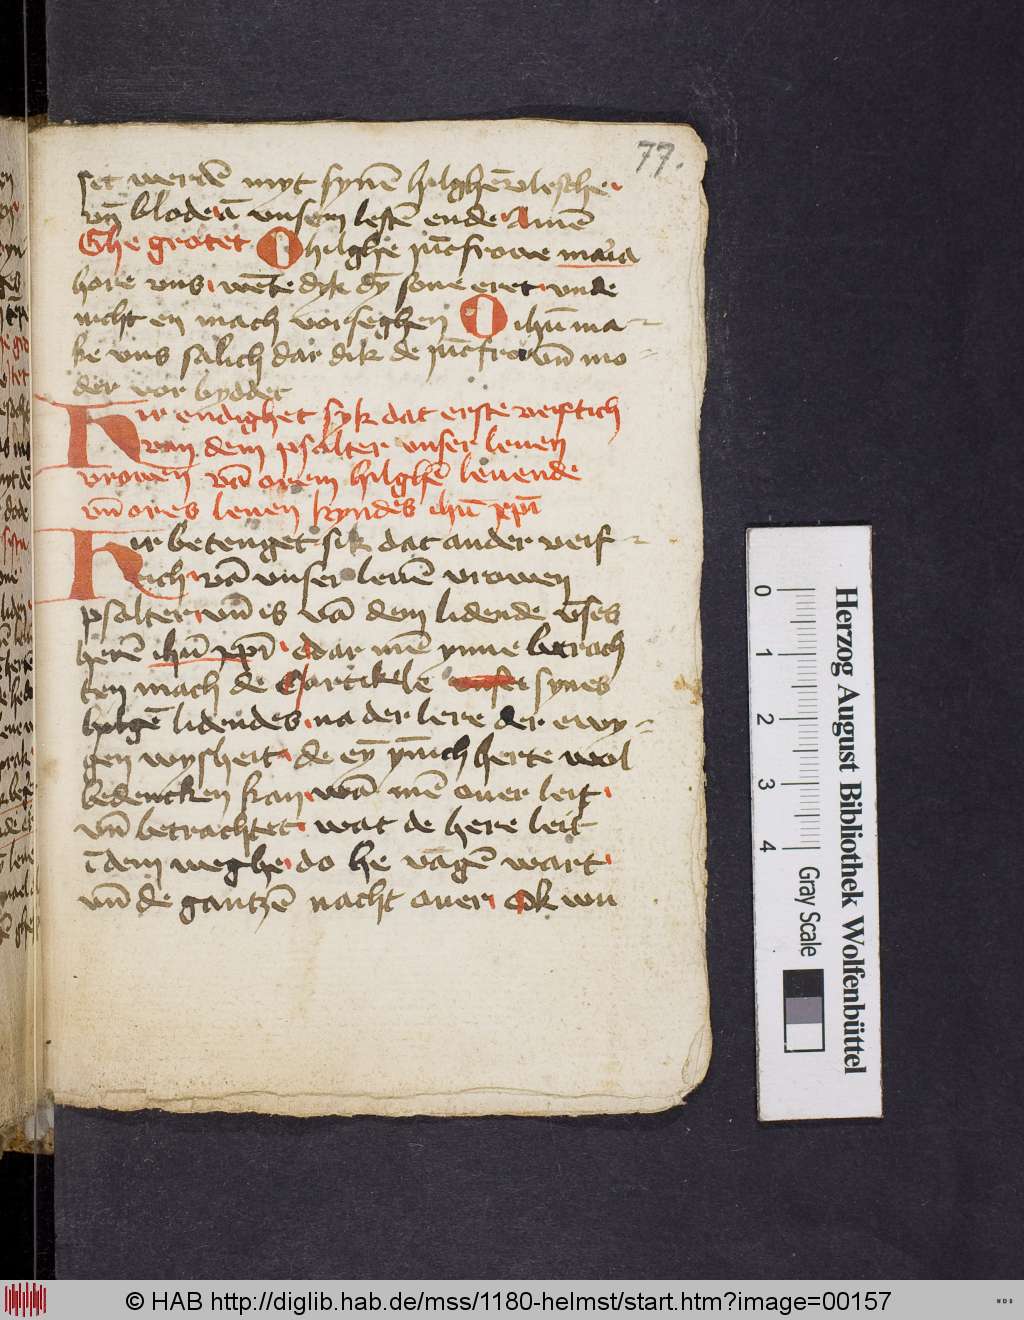 77.
set werdē myt synē hilghē vlesche
vn̄ blode ī vnsem lestē ende Amē
Ghe grotet O hilghe iūcfrowe maria
hore vns wēte dyk dȳ sone eret vnde
nicht en mach vorseghen O ihū ma-
ke vns salich dar dik de iūcfrow vn̄ mo-
der vor byddet
Hir endighet syk dat erste veiftich
van dem psalter vnser leuen
vrowen vā orem hilghē leuende
vn̄ ores leuen kyndes ihū xpī
Hir betenget sik dat ander veif-
tich vā vnser leuē vrowen
psalter vn̄ is vā dem lidende vses
herē ihū xpī dar mē ynne betrach
ten mach de artikele synes
hilgē lidendes na der lere der ewy-
gen wysheit de eȳ ȳnich herte wol
bedencken kan wā mē ouer leit
vn̄ betrachtet wat de here leit
ī dem weghe do he vāgē wart
vn̄ de gantzē nacht ouer Ok wu
Herzog August Bibliothek Wolfenbüttel
0 1 2 3 4 Gray Scale
© HAB http://diglib.hab.de/mss/1180-helmst/start.htm?image=00157